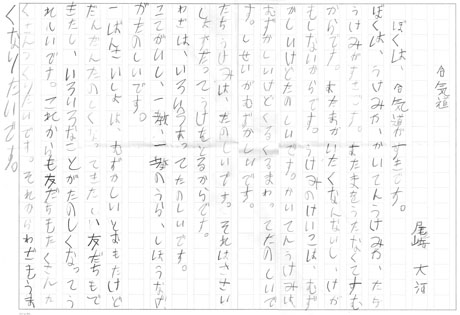 合気道
尾崎 大河
ぼくは、合気道がすきです。
ぼくは、うけみが、かいてんうけみが、たち
うけみがすきです。あたまをうたなくてすむ
からです。あたまがいたくなんないし、けが
もしないからです。うけみのけいこは、むず
かしいけどたのしいです。かいてんうけみは、
むずかしいけどくるくるまわってたのしいで
す。しせいがむずかしいです。
たちうけみは、たのしいです。それはさいご
しょやだってうけをとるからです。
わざは、いろいろあってたのしいです。
こてがいし、一教、一教のうら、しほうなげ
がたのしいです。
一ばんさいしょは、むずかしいとおもたけど
だんだんたのしくなってきた。い友だちもで
きたし、いろいろなことがたのしくなってう
れしいです。これからも友だちもたくさん
いです。それからわざもうま
くなりたいです。